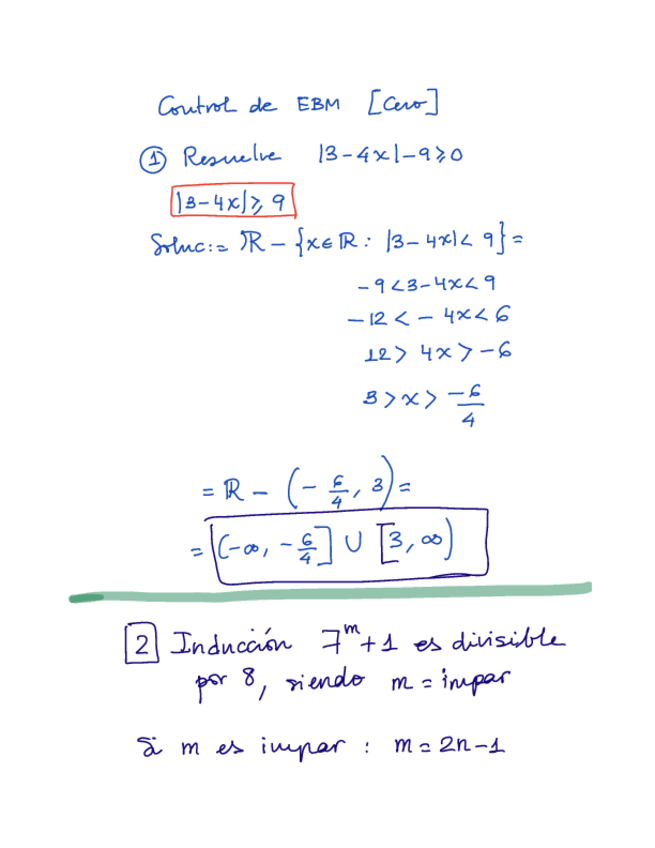 Control de EBM [Cero]
① Resuelve |3-4x|-9⩾0
|3-4x|⩾9
Soluc:= ℝ - {x∈ℝ: |3-4x|< 9}=
-9<3-4x<9
-12<-4x<6
12> 4x>-6
3>x> -6/4
= ℝ - (-6/4, 3)=
= (-∞, -6/4] ∪ [3, ∞)
2 Inducción 7^m+1 es divisible
por 8, siendo m = impar
Si m es impar : m=2n-1